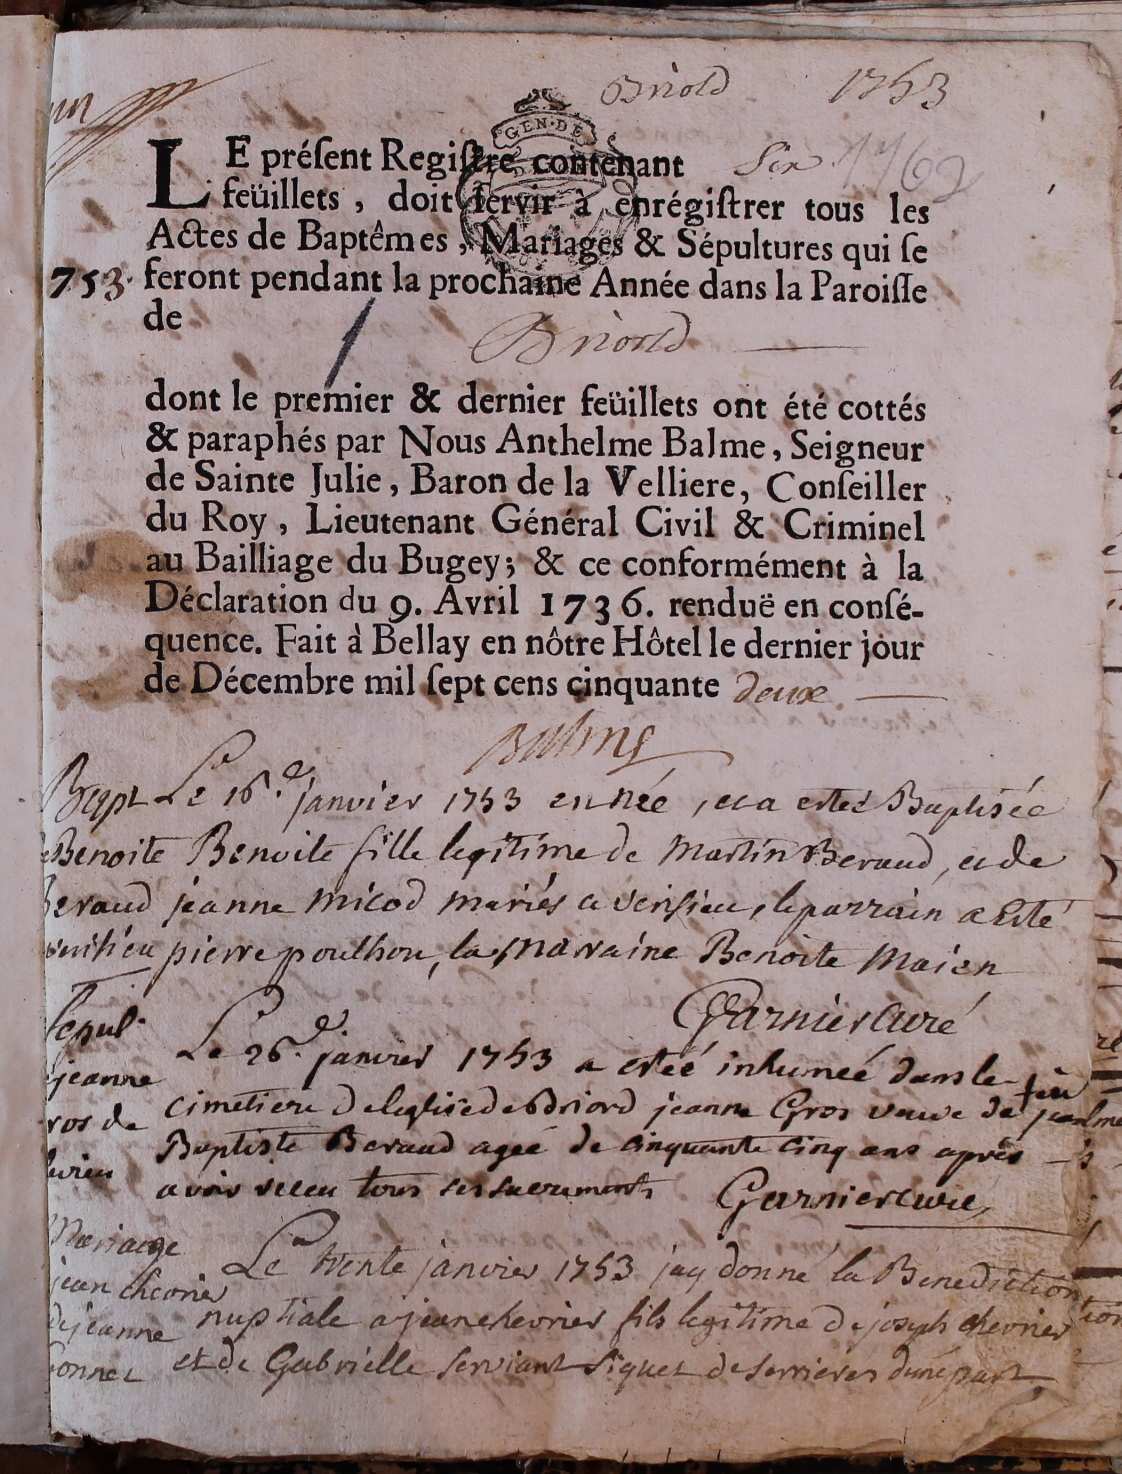 Briold 1753
GEN·DE
LE présent Registre contenant Six 1762
feüillets, doit servir à enrégistrer tous les
Actes de Baptêmes, Mariages & Sépultures qui se
753. feront pendant la prochaine Année dans la Paroisse
de Briord
dont le premier & dernier feüillets ont été cottés
& paraphés par Nous Anthelme Balme, Seigneur
de Sainte Julie, Baron de la Velliere, Conseiller
du Roy, Lieutenant Général Civil & Criminel
au Bailliage du Bugey; & ce conformément à la
Déclaration du 9. Avril 1736. renduë en consé-
quence. Fait à Bellay en nôtre Hôtel le dernier jour
de Décembre mil sept cens cinquante deux
Balme
Bapt Le 16.e janvier 1753 en née, et a estee Baptisée
Benoite Benoite fille legitime de Martin Beraud, et de
eraud jeanne micod mariés a verisieu, le parrain a esté
pierre pouthon, la Marraine Benoite Maien
Garnier curé
Sepul.
Le 26.e janvier 1753 a estéé inhumeé dans le
jeanne
cimetiere de leglise de Briord jeanne Gros veuve de feu jean
ros de
Baptiste Beraud ageé de cinquante cinq ans après
avoir receu tous ses sacrements Garnier curé,
Mariage
Le trente janvier 1753 jay donné la Benediction
jean chevrier
nuptiale a jean chevrier fils legitime de joseph chevrier
de jeanne
et de Gabrielle Serviant Siquet de serrieres d'une part,
onnet